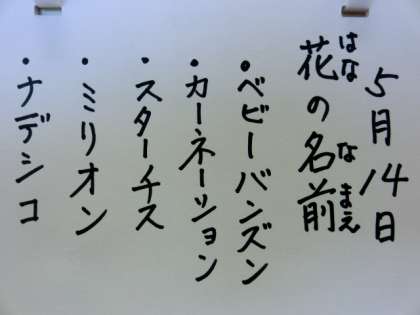 5月14日
花の名前
はな
なまえ
・ベビーバンズン
・カーネーション
・スターチス
・ミリオン
・ナデシコ